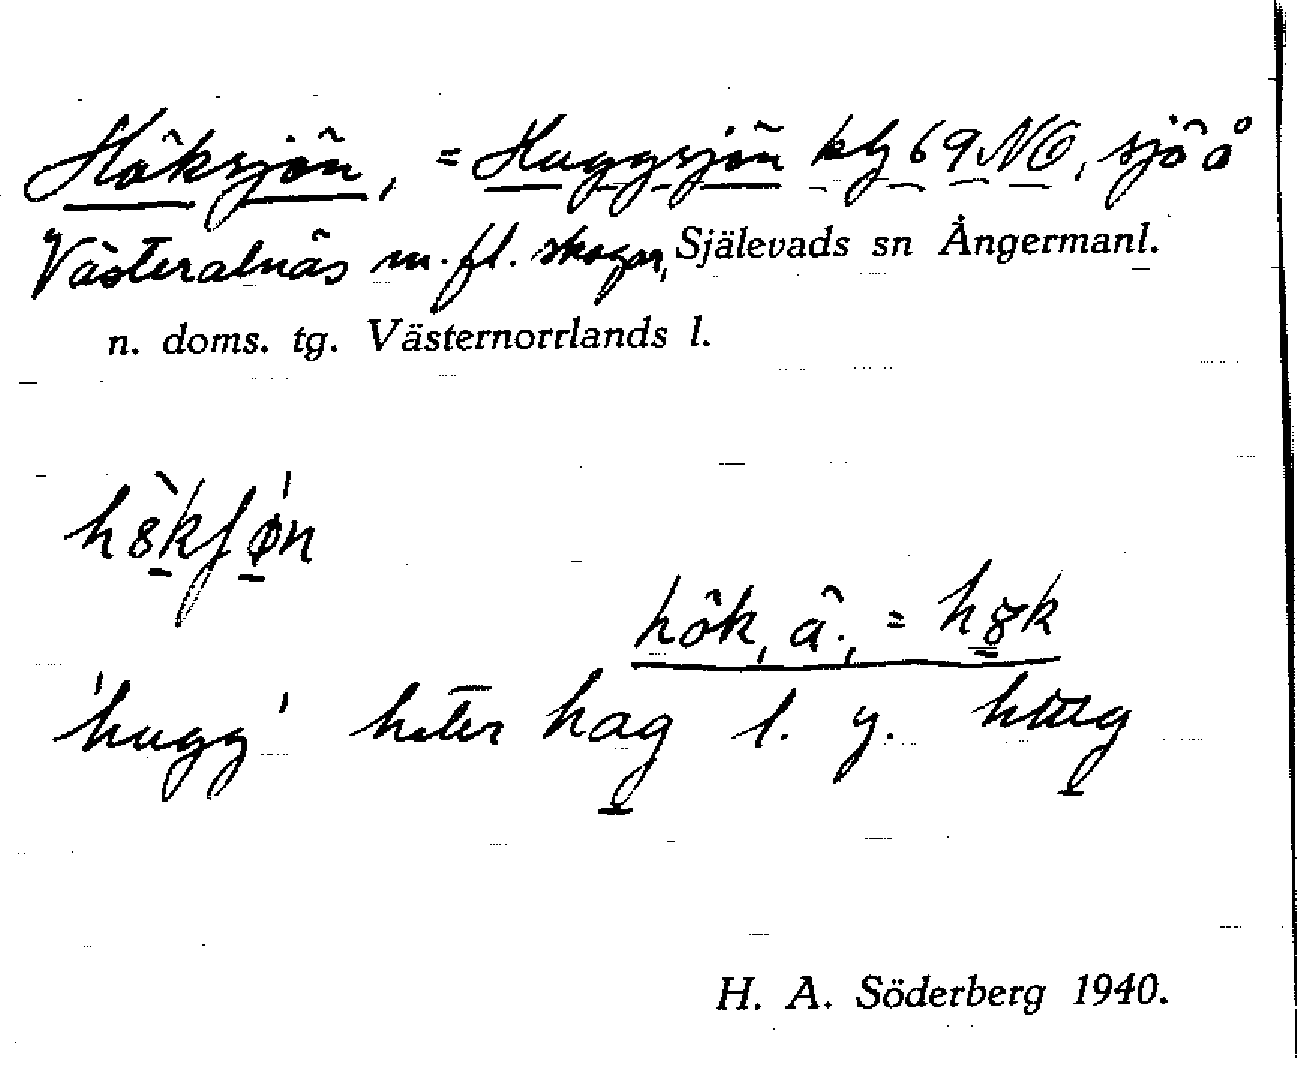 Höksjön, = Huggsjön kbl 69 NO, sjö å
Västeralnäs m. fl. skogar, Själevads sn Ångermanl.
n. doms. tg. Västernorrlands l.
hökʃøn
hök, â., = høk
'hugg' heter hag l. y. hug
H. A. Söderberg 1940.